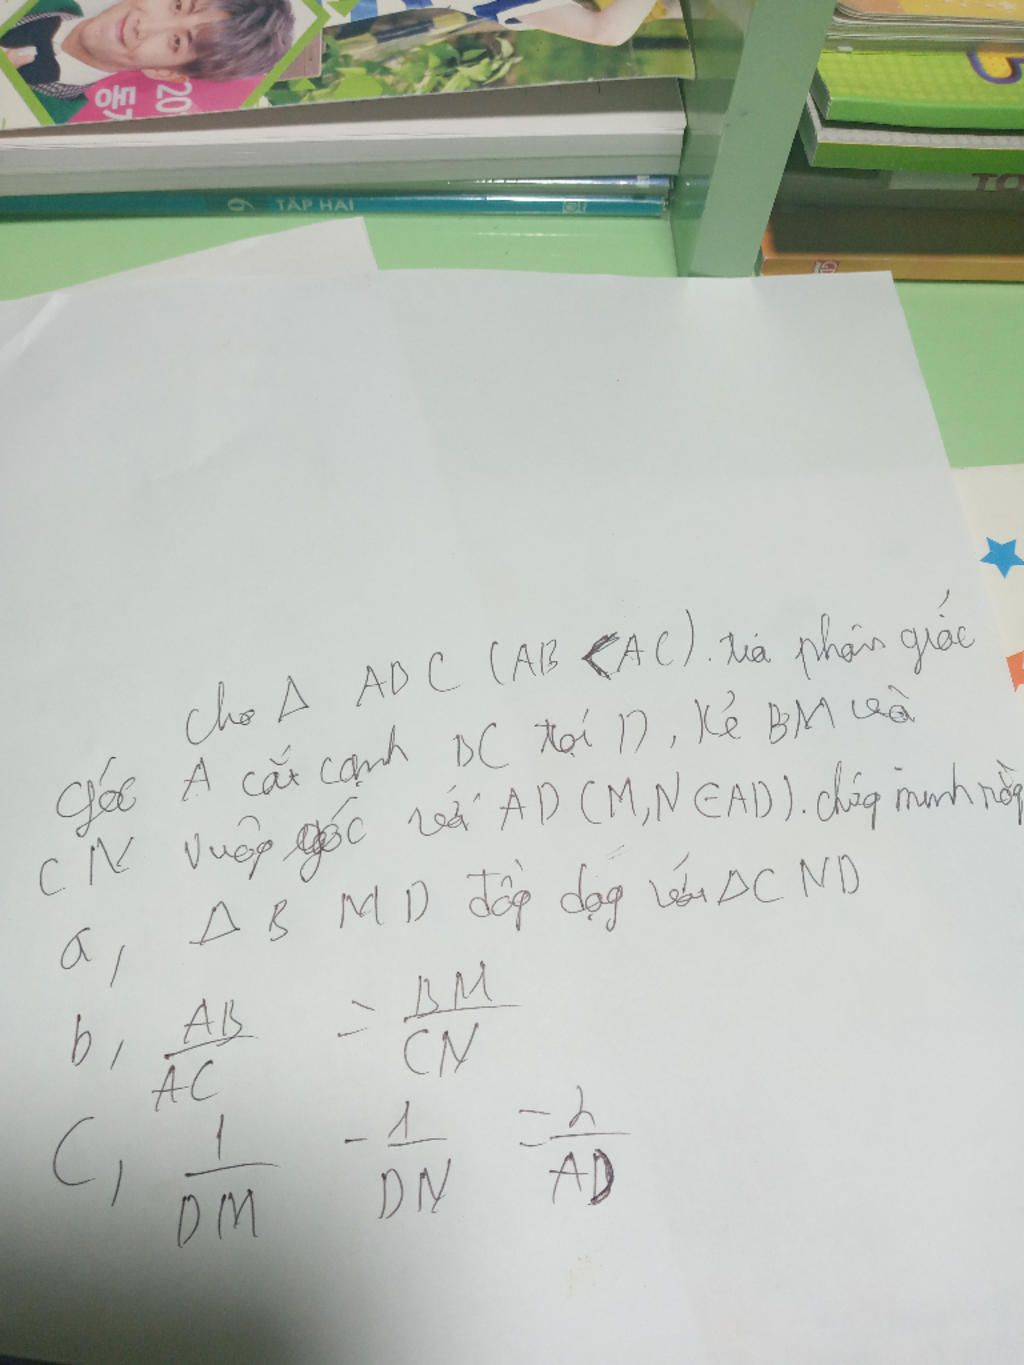 20
동
6 TẬP HAI
5
TO
Cho Δ ABC (AB < AC). tia phân giác
góc A cắt cạnh BC tại D, kẻ BM và
CN vuông góc với AD (M,N ∈ AD). chứng minh rằng
a, Δ BMD đồng dạng với Δ CND
b, AB/AC = BM/CN
C, 1/DM - 1/DN = 2/AD